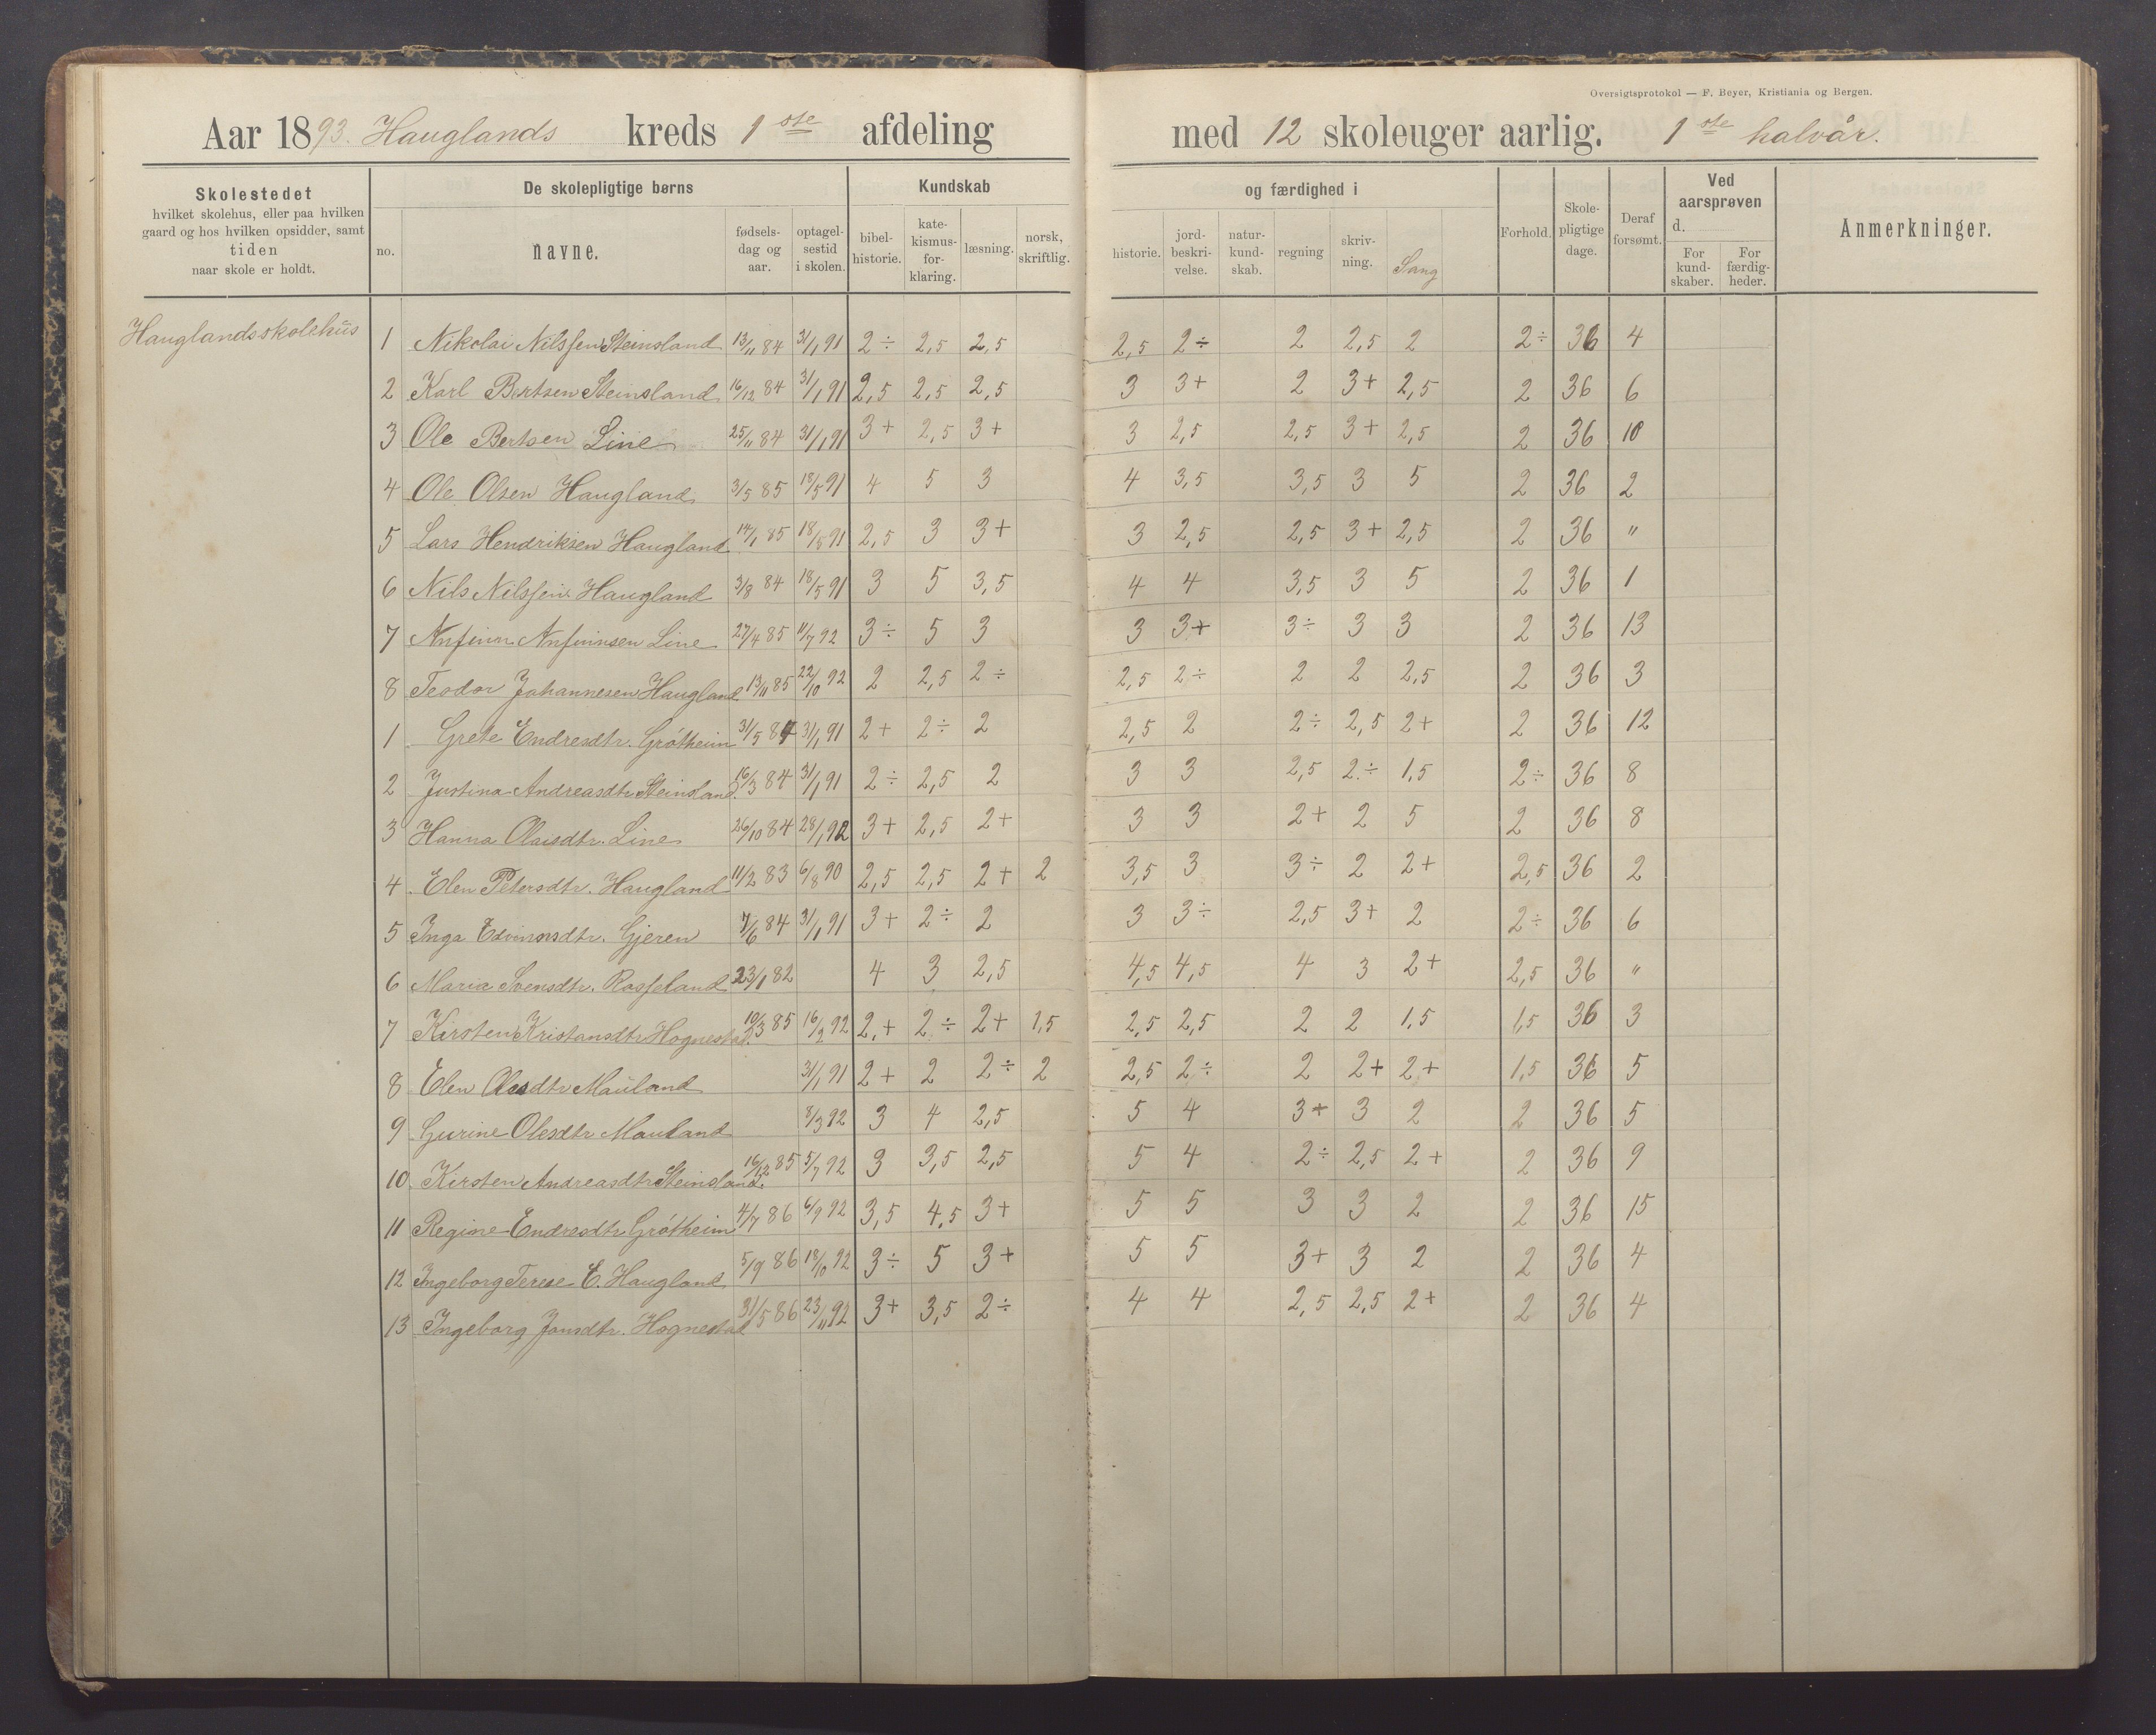 Oversigtsprotokol — F. Beyer, Kristiania og Bergen.
Aar 1893. Hauglands kreds 1ste afdeling med 12 skoleuger aarlig. 1ste halvår.
Skolestedet hvilket skolehus, eller paa hvilken gaard og hos hvilken opsidder, samt tiden naar skole er holdt.
De skolepligtige børns
no. navne. fødsels-dag og aar. optagel-sestid i skolen.
Kundskab og færdighed i
bibel-historie. kate-kismus-for-klaring. læsning. norsk, skriftlig. historie. jord-beskri-velse. natur-kund-skab. regning skriv-ning. Sang
Forhold. Skole-pligtige dage. Deraf forsømt.
Ved aarsprøven d. For kund-skaber. For færdig-heder.
Anmerkninger.
Hauglands skolehus
1 Nikolai Nilssen Steinsland 13/11 84 31/1 91 2÷ 2,5 2,5 2,5 2÷ 2 2,5 2 2÷ 36 4
2 Karl Bertsen Steinsland 16/12 84 31/1 91 2,5 2,5 2,5 3 3+ 2 3+ 2,5 2 36 6
3 Ole Bertsen Line 25/11 84 31/1 91 3+ 2,5 3+ 3 2,5 2,5 3+ 2,5 2 36 10
4 Ole Olsen Haugland 3/5 85 18/5 91 4 5 3 4 3,5 3,5 3 5 2 36 2
5 Lars Hendriksen Haugland 14/1 85 18/5 91 2,5 3 3+ 3 2,5 2,5 3+ 2,5 2 36 "
6 Nils Nilssen Haugland 3/8 84 18/5 91 3 5 3,5 4 4 3,5 3 5 2 36 1
7 Anfinn Anfinnsen Line 27/4 85 11/7 92 3÷ 5 3 3 3+ 3÷ 3 3 2 36 13
8 Teodor Johannesen Haugland 13/11 85 22/10 92 2 2,5 2÷ 2,5 2÷ 2 2 2,5 2 36 3
1 Grete Endresdtr. Grótheim 31/5 84 31/1 91 2+ 2÷ 2 2,5 2 2÷ 2,5 2+ 2 36 12
2 Justina Andreasdtr Steinsland. 16/3 84 31/1 91 2÷ 2,5 2 3 3 2,5 2÷ 1,5 2÷ 36 8
3 Hanna Olaisdtr. Line 26/10 84 28/1 92 3+ 2,5 2+ 3 3 2+ 2 5 2 36 8
4 Elen Petersdtr. Haugland 11/2 83 6/8 90 2,5 2,5 2+ 2 3,5 3 3÷ 2 2+ 2,5 36 2
5 Inga Edvinsdtr. Gjeren 7/6 84 31/1 91 3+ 2÷ 2 3 3÷ 2,5 3+ 2 2÷ 36 6
6 Maria Svensdtr. Rosseland 23/1 82 4 3 2,5 4,5 4,5 4 3 2+ 2,5 36 "
7 Kirsten Kristansdtr Hognestad. 10/3 85 16/2 92 2+ 2÷ 2+ 1,5 2,5 2,5 2 2 1,5 1,5 36 3
8 Elen Olasdtr Mauland 31/1 91 2+ 2 2÷ 2 2,5 2÷ 2 2+ 2+ 1,5 36 5
9 Gurine Olesdtr Mauland 8/3 92 3 4 2,5 5 4 3+ 3 2 2 36 5
10. Kirsten Andreasdtr Steinsland. 16/12 85 5/7 92 3 3,5 2,5 5 4 2÷ 2,5 2+ 2 36 9
11 Regine Endresdtr. Grótheim 4/7 86 6/9 92 3,5 4,5 3+ 5 5 3 3 2 2 36 15
12 Ingeborg Terese E. Haugland 5/9 86 18/10 92 3÷ 5 3+ 5 5 3+ 3 2 2 36 4
13 Ingeborg Jonsdtr. Hognestad 31/5 86 23/11 92 3+ 3,5 2÷ 4 4 2,5 2,5 2+ 2 36 4